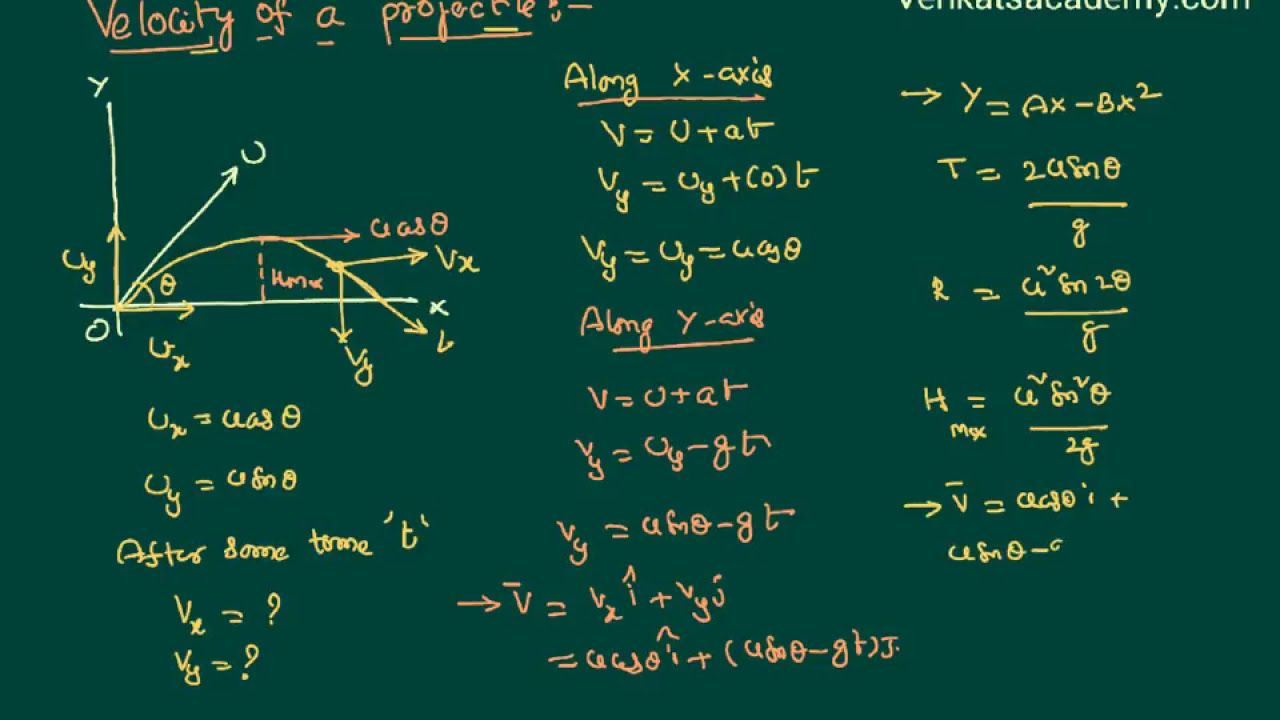 Velocity of a projectile:-
Venkatsacademy.com
Y
U
Uy
θ
ucosθ
Vx
Hmax
X
O
Ux
Vy
Ux = ucosθ
Uy = usinθ
After some tome 't'
Vx = ?
Vy = ?
Along X-axis
V = U + at
Vy = Uy + (0) t
Vy = Uy = ucosθ
Along Y-axis
V = U + at
Vy = Uy - gt
Vy = usinθ - gt
→ V̄ = Vx î + Vy ĵ
= ucosθ î + (usinθ - gt) J
→ Y = Ax - Bx²
T = 2usinθ
g
R = u² sin 2θ
g
H Max = u² sin²θ
2g
→ V̄ = ucosθ i +
usinθ -